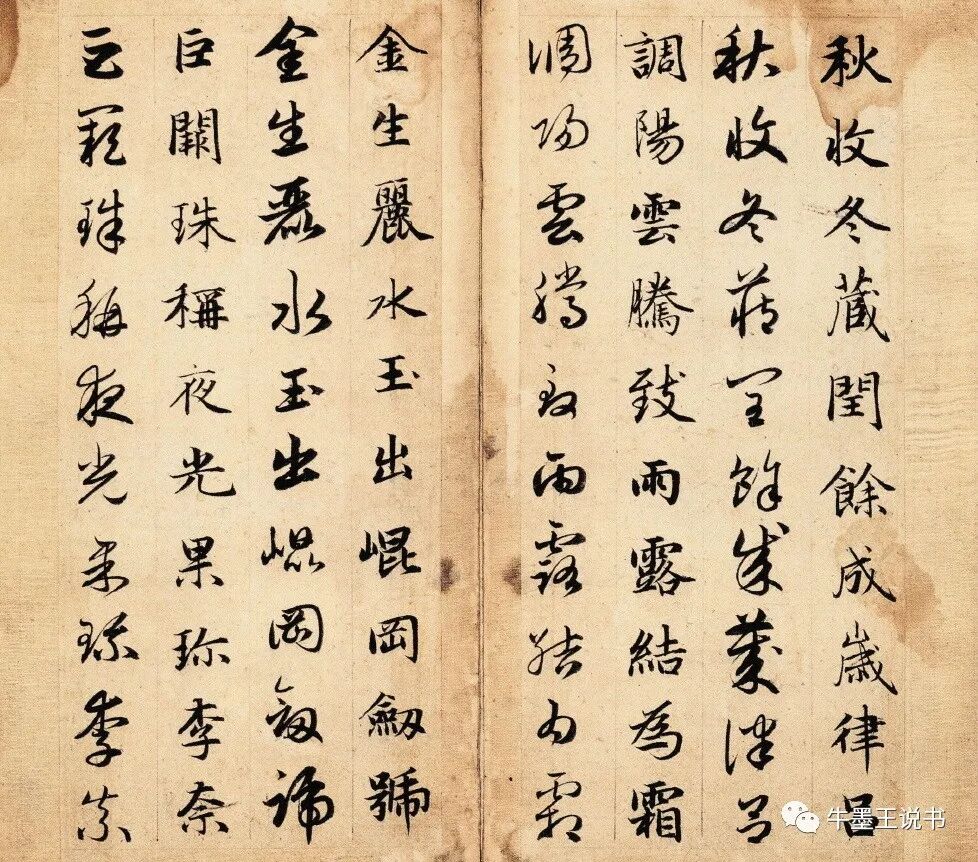 秋收冬蔵閏餘成歲律吕
秋收冬蔵閏餘成歲律吕
調陽雲騰致雨露結為霜
調陽雲騰致雨露結為霜
金生麗水玉出崐岡劔號
金生麗水玉出崐岡劔號
巨闕珠稱夜光果珎李柰
巨闕珠稱夜光果珎李柰
牛墨王说书